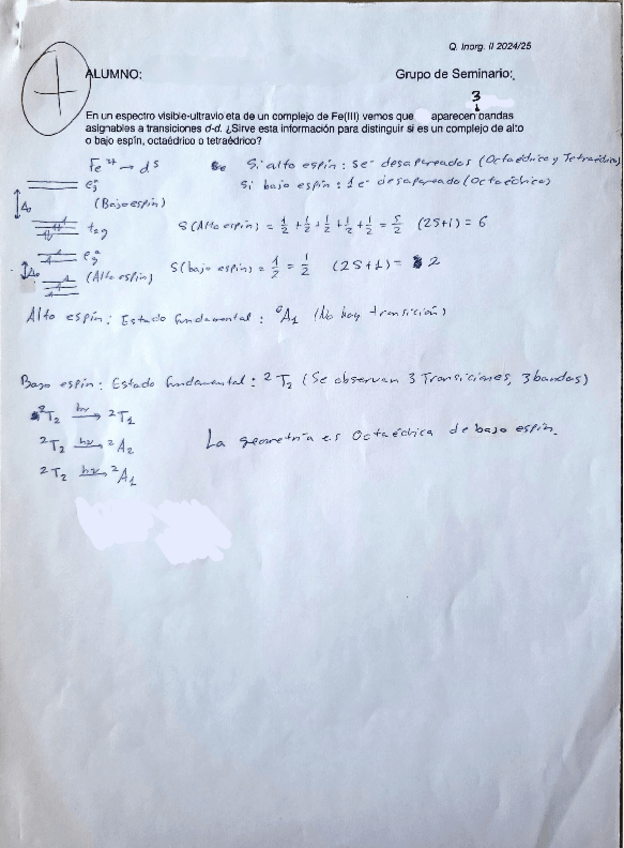 Q. Inorg. II 2024/25
ALUMNO:
Grupo de Seminario:
3
En un espectro visible-ultravioleta de un complejo de Fe(III) vemos que aparecen bandas
asignables a transiciones d-d. ¿Sirve esta información para distinguir si es un complejo de alto
o bajo espín, octaédrico o tetraédrico?
→ d⁵ Si alto espín: 5e⁻ desapareados (Octaédrico y Tetraédrico)
Si bajo espín: 1e⁻ desapareado (Octaédrico)
Δo (Bajo espín)
t₂g S(Alto espín) = 1/2 + 1/2 + 1/2 + 1/2 + 1/2 = 5/2 (2S+1) = 6
Δo (Alto espín) S(bajo espín) = 1/2 = 1/2 (2S+1) = 2
Alto espín: Estado fundamental: ⁶A₁ (No hay transición)
Bajo espín: Estado fundamental: ²T₂ (Se observan 3 Transiciones, 3 bandas)
²T₂ hν→ ²T₁
²T₂ hν→ ²A₂ La geometría es Octaédrica de bajo espín.
²T₂ hν→ ²A₁